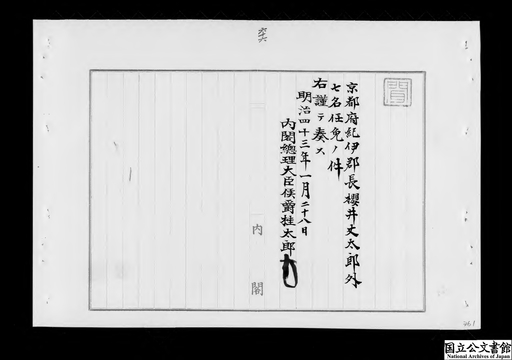 京都府紀伊郡長櫻井丈太郎外
七名任免ノ件
右謹テ奏ス
明治四十三年一月二十八日
内閣總理大臣侯爵桂太郎
内閣
国立公文書館
National Archives of Japan